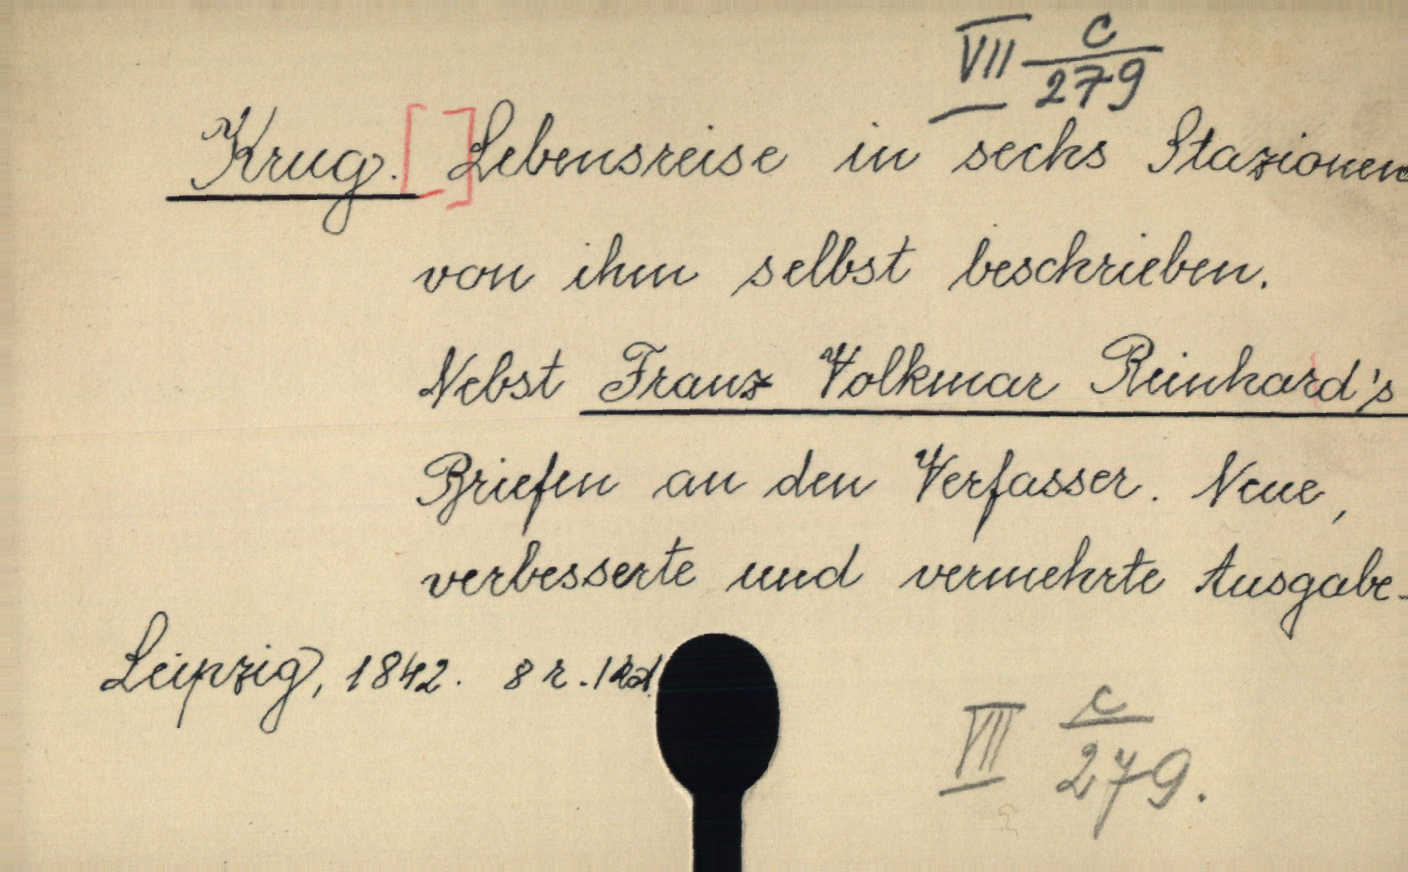 VII c/279
Krug. [ ] Lebensreise in sechs Stazionen
von ihm selbst beschrieben.
Nebst Franz Volkmar Reinhard's
Briefen an den Verfasser. Neue,
verbesserte und vermehrte Ausgabe.
Leipzig, 1842. 8 r. 1 kd.
VII c/279.